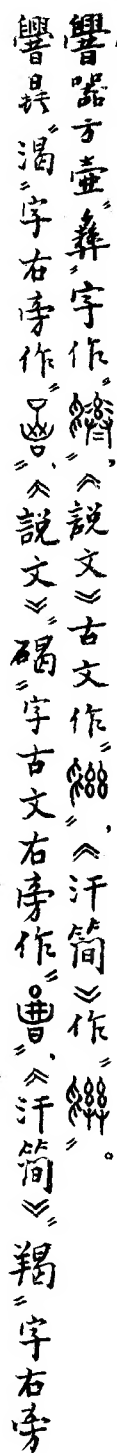 器方壺“彝”字作“”，《說文》古文作“”，《汗簡》作“”。
鼎“渴”字右旁作“”、《說文》“碣”字古文右旁作“”、《汗簡》“羯”字右旁